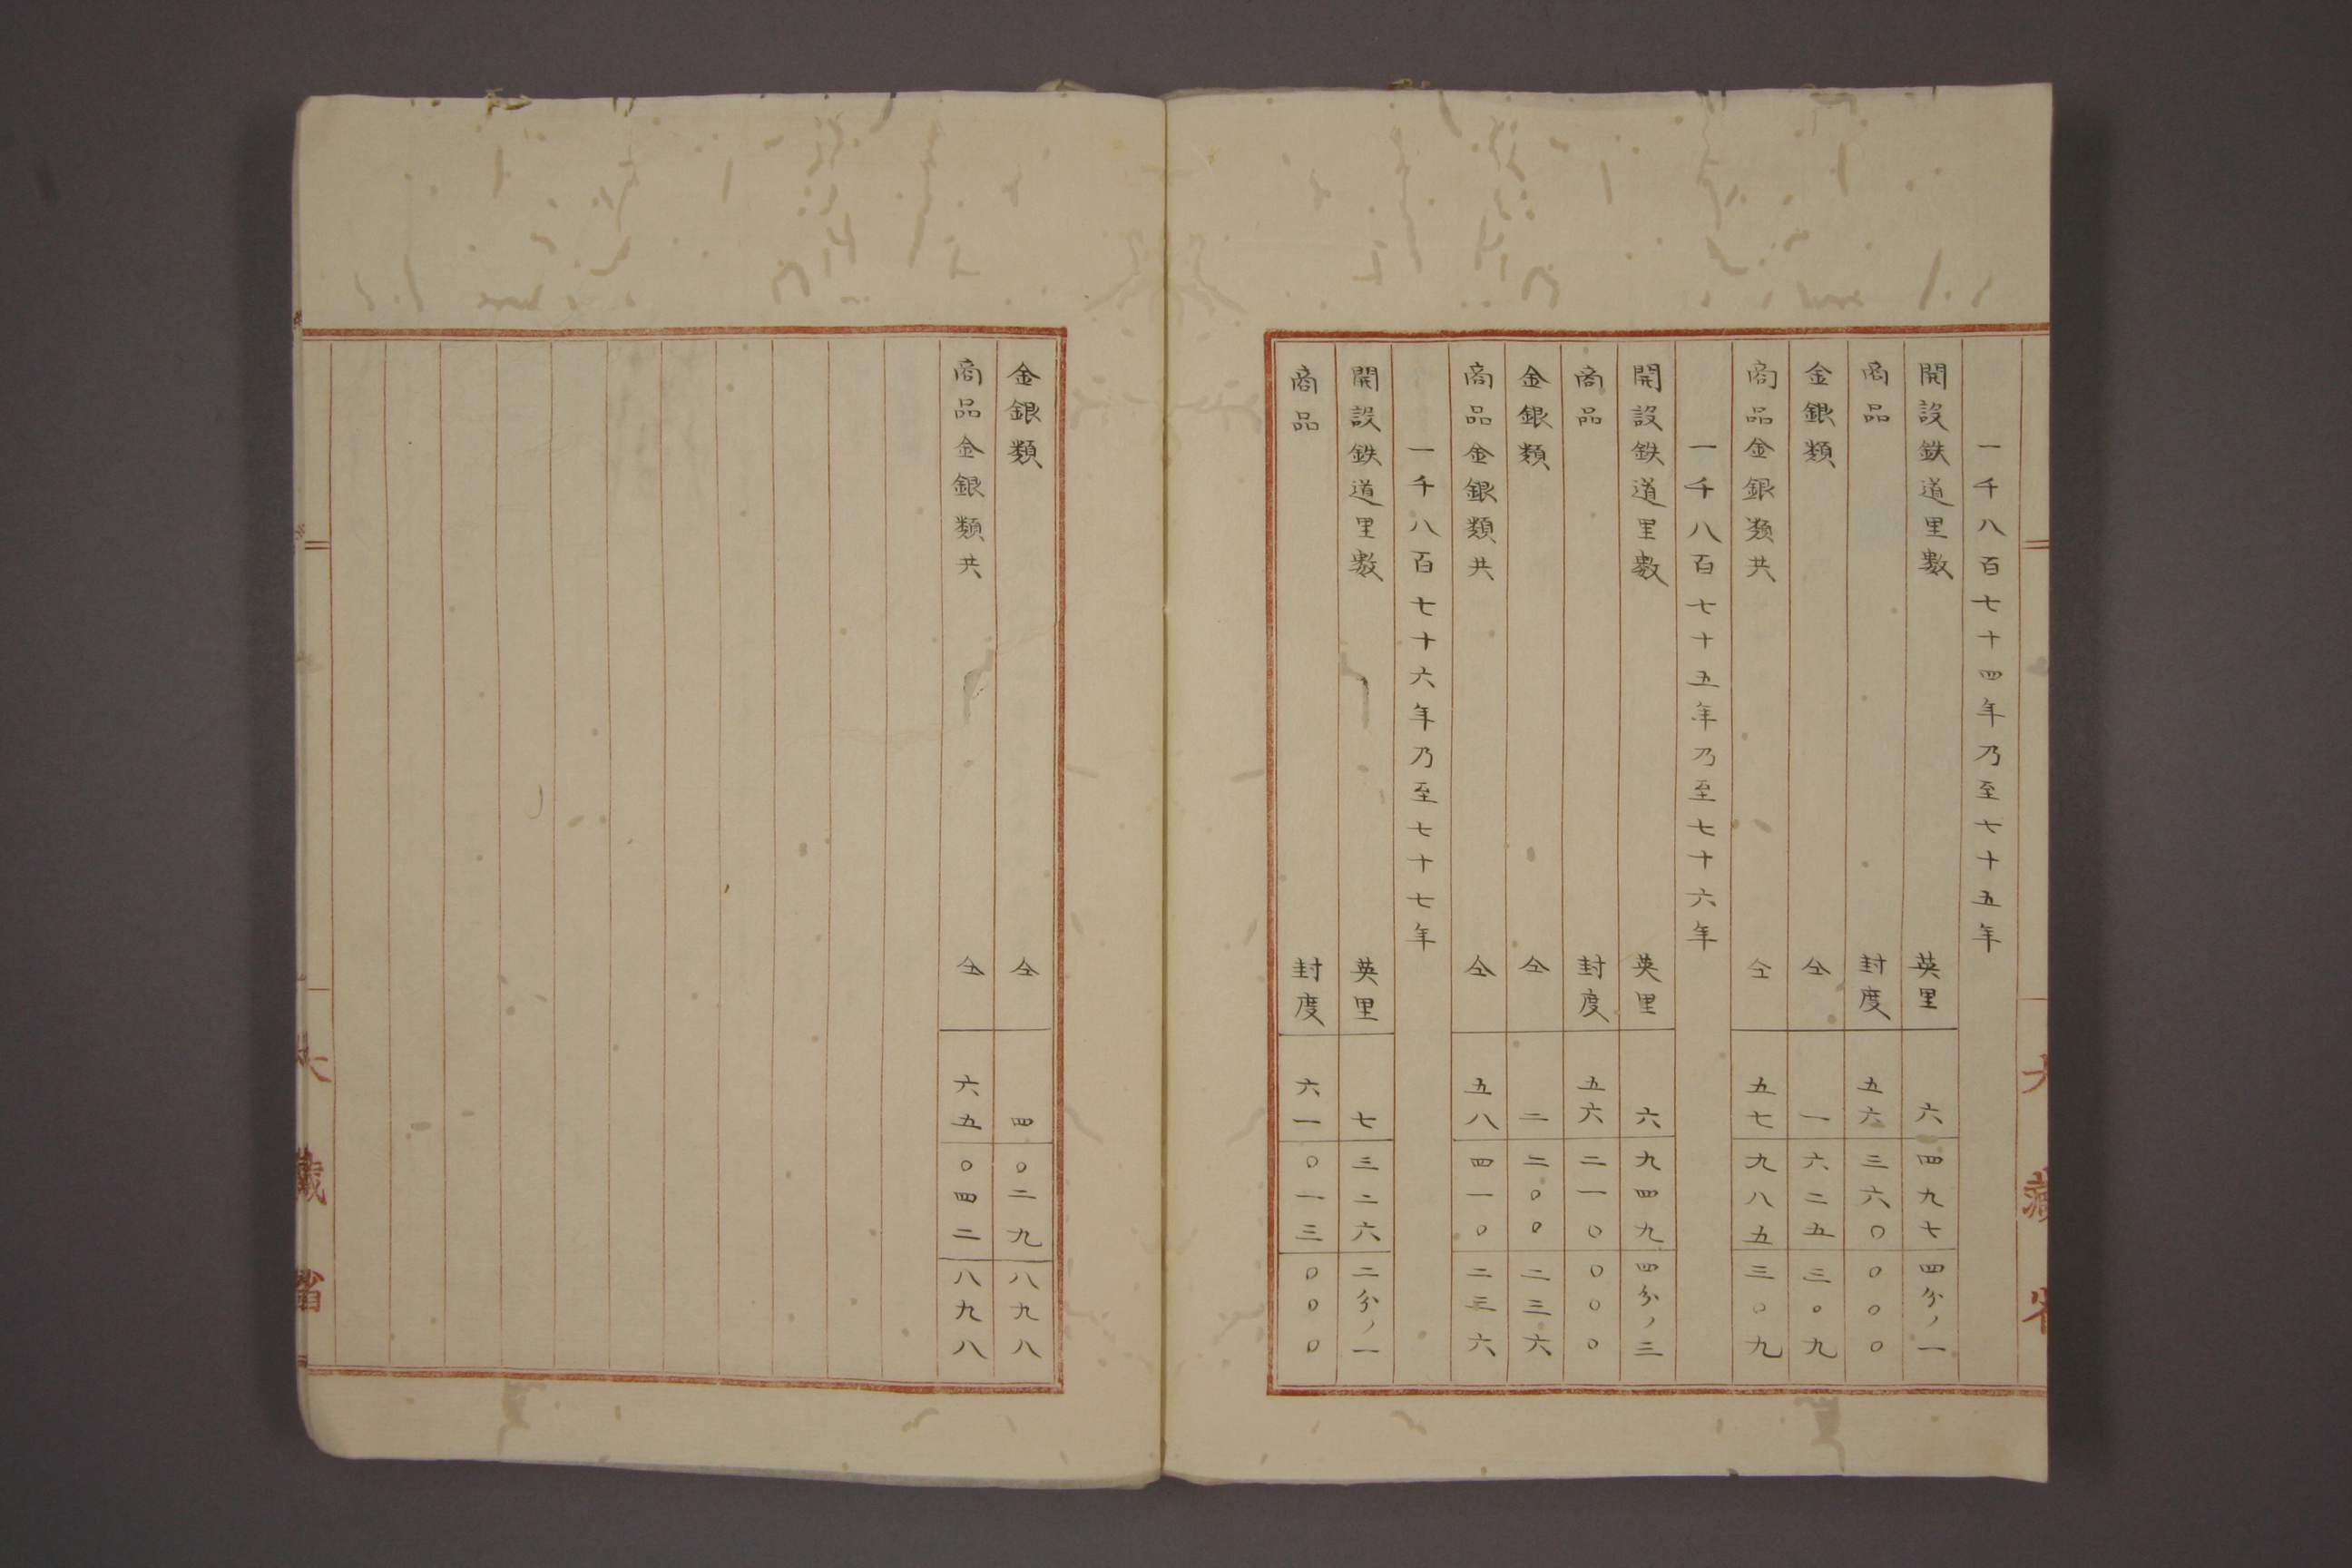 一千八百七十四年乃至七十五年
開設鉄道里數 英里 六四九七四分ノ一
商品 封度 五六三六〇〇〇〇
金銀類 仝 一六二五三〇九
商品金銀類共 仝 五七九八五三〇九
一千八百七十五年乃至七十六年
開設鉄道里數 英里 六九四九四分ノ三
商品 封度 五六二一〇〇〇〇
金銀類 仝 二二〇〇二三六
商品金銀類共 仝 五八四一〇二三六
一千八百七十六年乃至七十七年
開設鉄道里數 英里 七三二六二分ノ一
商品 封度 六一〇一三〇〇〇
金銀類 仝 四〇二九八九八
商品金銀類共 仝 六五〇四二八九八
大藏省